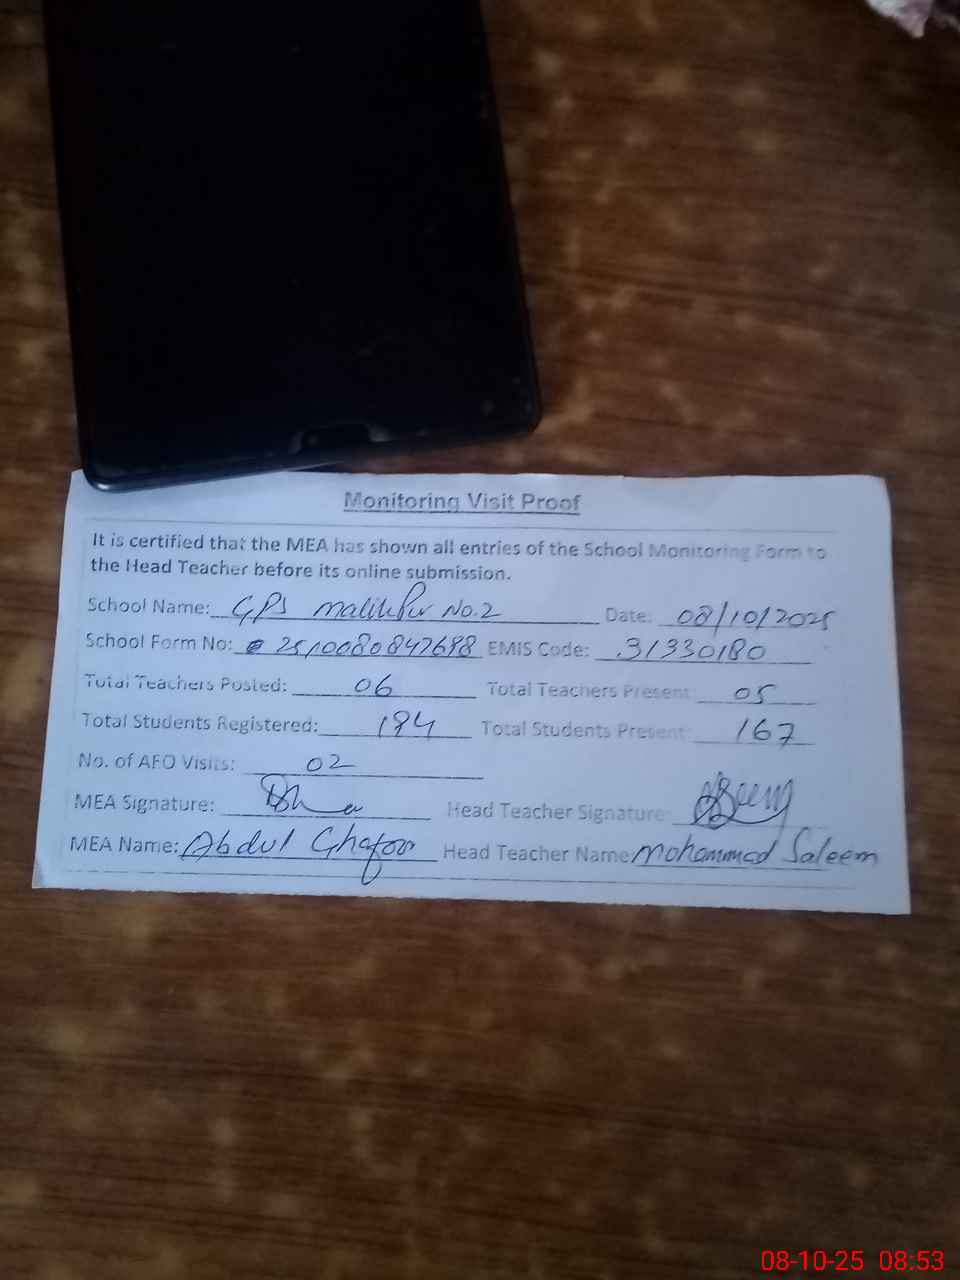 Monitoring Visit Proof
It is certified that the MEA has shown all entries of the School Monitoring Form to
the Head Teacher before its online submission.
School Name: GPS malikPur No.2 Date: 08/10/2025
School Form No: 2510080847698 EMIS Code: 31330180
Total Teachers Posted: 06 Total Teachers Present: 05
Total Students Registered: 194 Total Students Present: 167
No. of AEO Visits: 02
MEA Signature: Head Teacher Signature:
MEA Name: Abdul Ghafoor Head Teacher Name: Mohammad Saleem
08-10-25 08:53